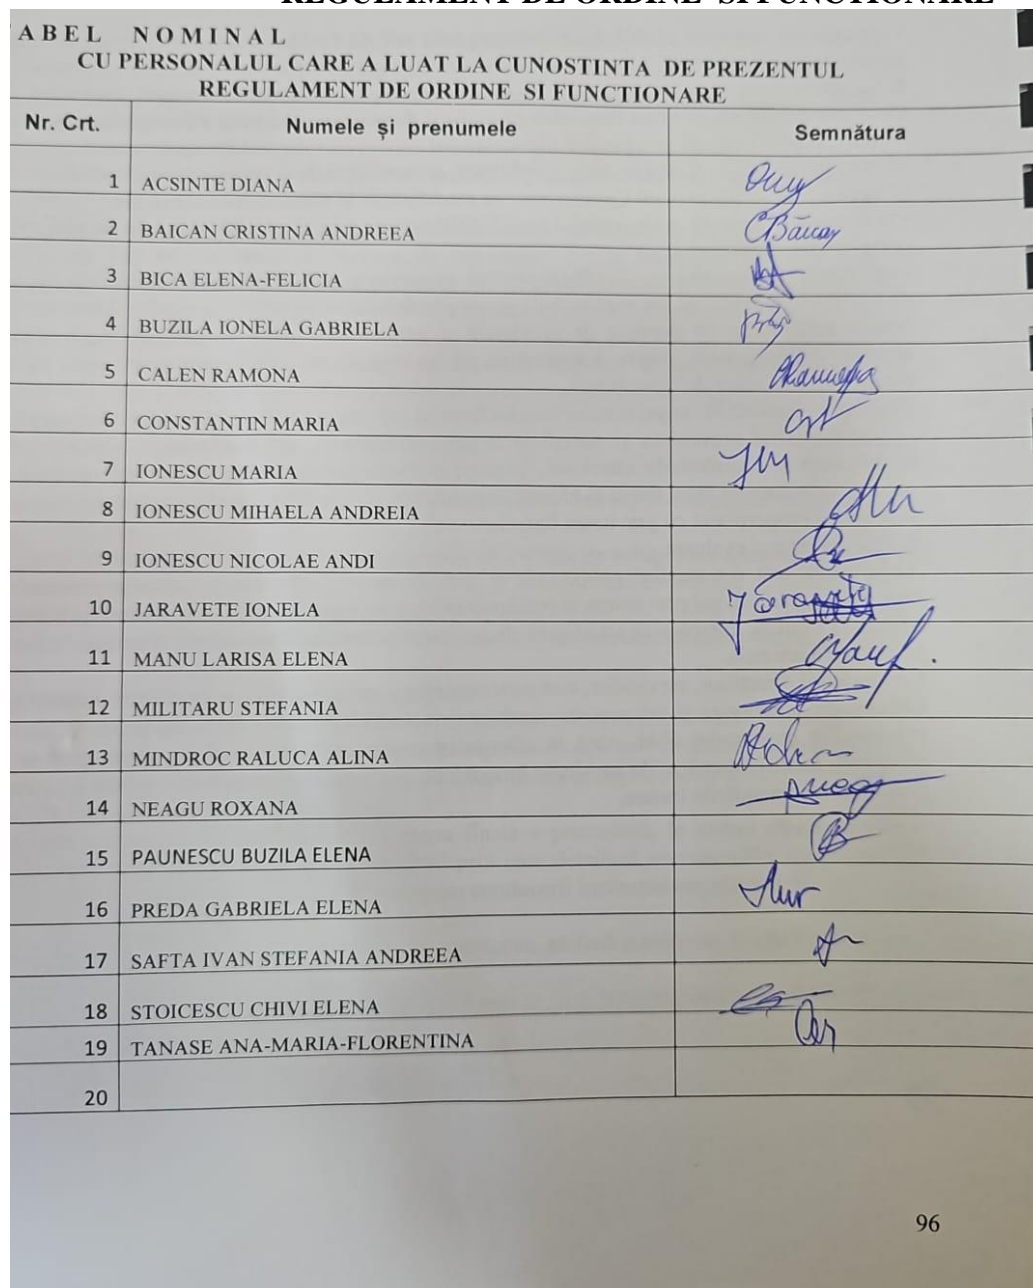 REGULAMENT DE ORDINE SI FUNCTIONARE
ABEL NOMINAL
CU PERSONALUL CARE A LUAT LA CUNOSTINTA DE PREZENTUL
REGULAMENT DE ORDINE SI FUNCTIONARE
Nr. Crt. Numele și prenumele Semnătura
1 ACSINTE DIANA
2 BAICAN CRISTINA ANDREEA
3 BICA ELENA-FELICIA
4 BUZILA IONELA GABRIELA
5 CALEN RAMONA
6 CONSTANTIN MARIA
7 IONESCU MARIA
8 IONESCU MIHAELA ANDREIA
9 IONESCU NICOLAE ANDI
10 JARAVETE IONELA
11 MANU LARISA ELENA
12 MILITARU STEFANIA
13 MINDROC RALUCA ALINA
14 NEAGU ROXANA
15 PAUNESCU BUZILA ELENA
16 PREDA GABRIELA ELENA
17 SAFTA IVAN STEFANIA ANDREEA
18 STOICESCU CHIVI ELENA
19 TANASE ANA-MARIA-FLORENTINA
20
96